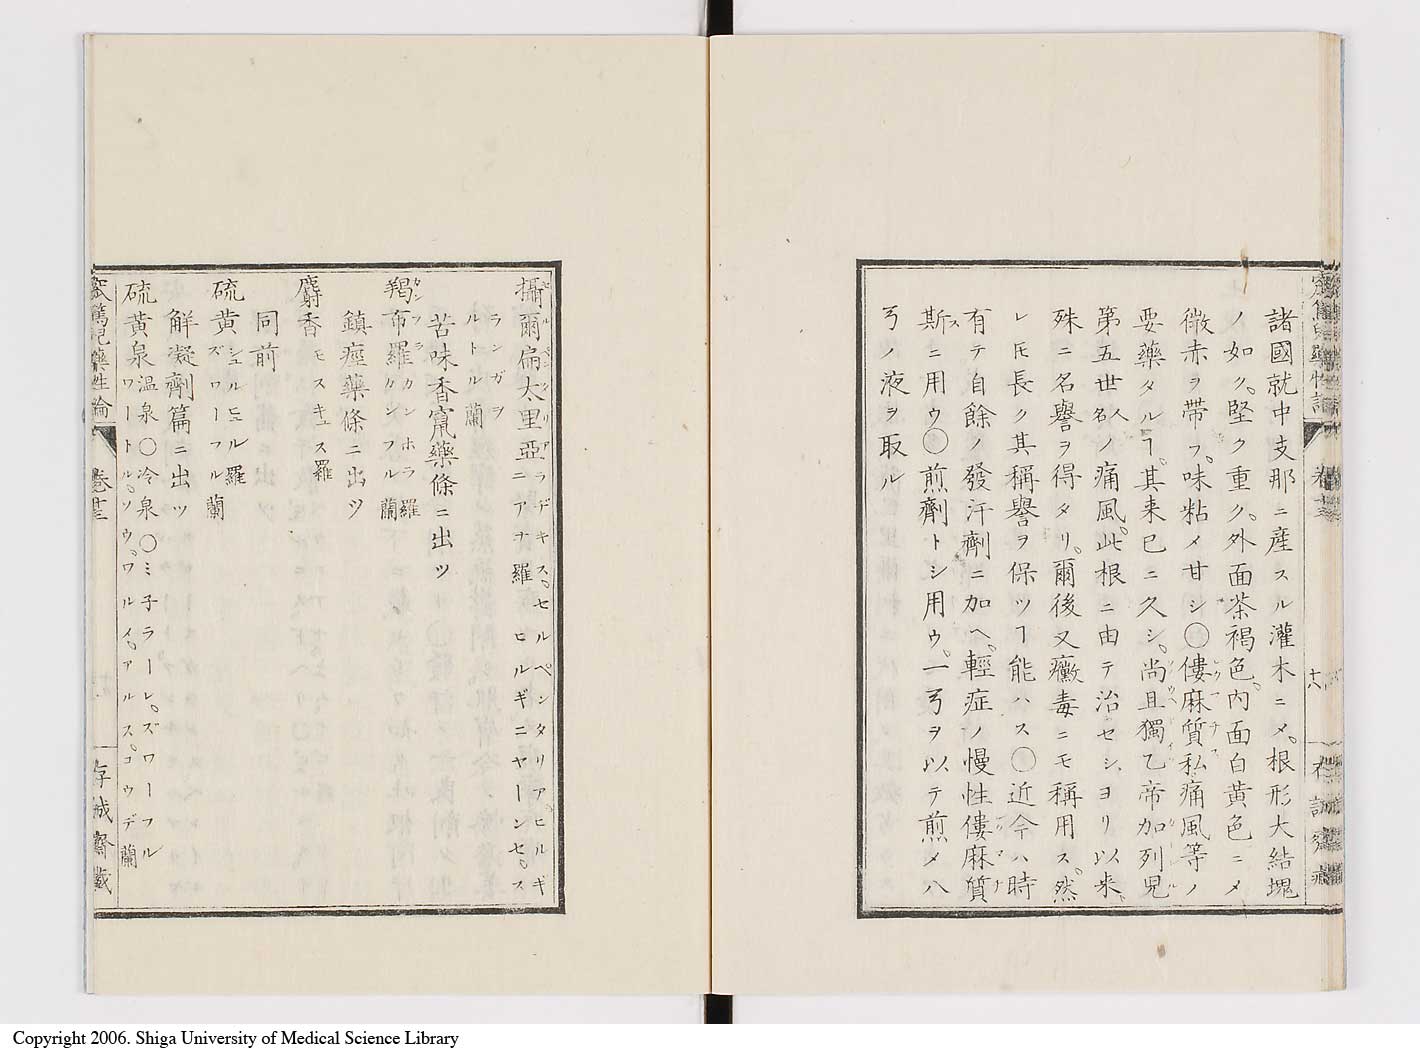 諸國就中支那ニ産スル灌木ニㄨ。根形大結塊
ノ如ク。堅ク重ク。外面茶褐色。内面白黄色ニㄨ
微赤ヲ帶フ。味粘ㄨ甘シ〇僂麻質私痛風等ノ
要藥タルヿ。其来已ニ久シ。尚且獨乙帝加列児
第五世人名ノ痛風。此根ニ由テ治セシヨリ以来。
殊ニ名譽ヲ得タリ。爾後又黴毒ニモ稱用ス。然
レ𪜈長ク其稱譽ヲ保ツヿ能ハス〇近今ハ時
有テ自餘ノ發汗劑ニ加ヘ。輕症ノ慢性僂麻質
斯ニ用ウ〇煎劑トシ用ウ。一弓ヲ以テ煎ㄨ八
弓ノ液ヲ取ル
卷十三
十六
存誠齋藏
攝爾扁太里亞 ラデキス。セルペンタリア。ヒルギ
ニアナ 羅 ヒルギニヤーンセ。ス
ランガヲ
ルトル 蘭
苦味香竄藥條ニ出ツ
羯布羅 カンホラ 羅
カンフル 蘭
鎮痙藥條ニ出ツ
麝香 モスキュス 羅
同前
硫黄 シュルヒュル 羅
ズワーフル 蘭
解凝劑篇ニ出ツ
硫黄泉 温泉〇冷泉〇ミ子ラーレ。ズワーフル
ワートル。ソウ。ワルイ。アルス。コウデ 蘭
窊篤児藥性論
卷十三
存誠齋藏
Copyright 2006. Shiga University of Medical Science Library